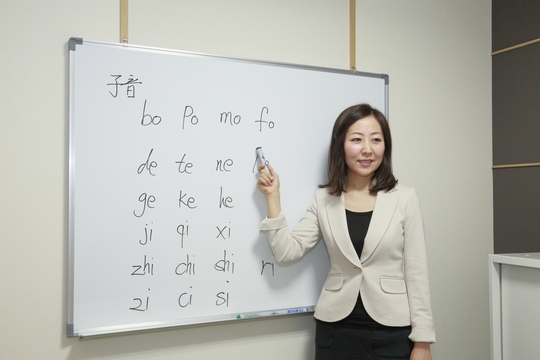 子音
bo po mo fo
de te ne
ge ke he
ji qi xi
zhi chi shi ri
zi ci si